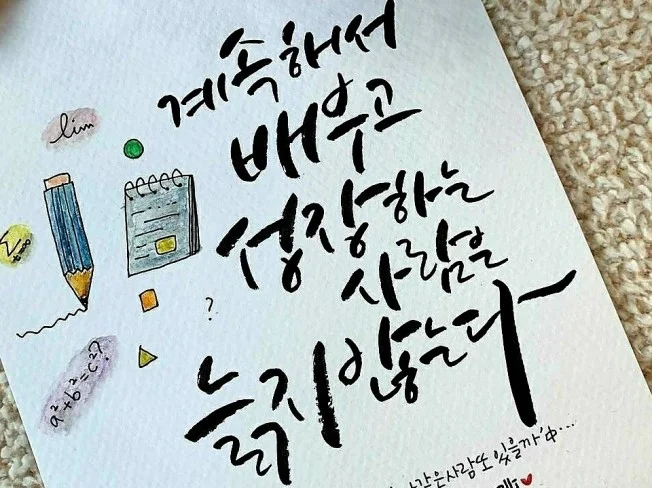 계속해서
배우고
성장하는
사람은
늙지 않는다
lim
Σ
?
a²+b²=c²?
같은사람또 있을까'中...